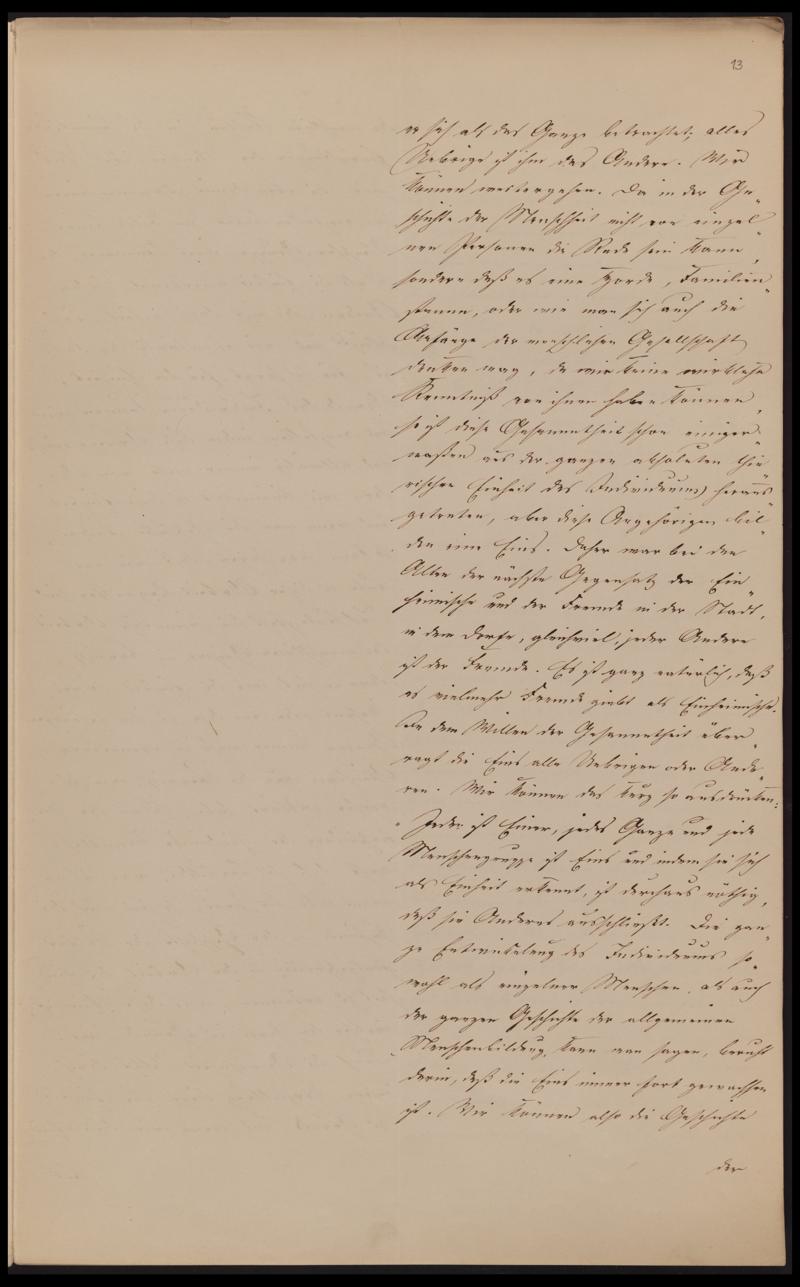 13
er sich als das Ganze betrachtet; alles
Uebrige ist ihm das Andere. Wir
können weitergehen. Da in der Ge„
schichte der Menschheit nicht von einzel„
nen Personen die Rede sein kann,
sondern daß es eine Horde, Familien„
stamm, oder wie man sich auch die
Anfänge der menschlichen Gesellschaft
denken mag, da wir keine wirkliche
Kenntniß von ihnen haben können,
so ist diese Gesammtheit schon einiger„
maßen aus der ganzen absoluten thie„
rischen Einheit des Individuums heraus„
getreten, aber diese Angehörigen bil„
den eine Eins. Daher war bei den
Alten der nächste Gegensatz der Ein„
heimische und der Fremde in der Stadt,
in dem Dorfe, gleichviel, jeder Andere
ist der Fremde. Es ist ganz natürlich, daß
es vielmehr Fremde giebt als Einheimische.
In dem Willen der Gesammtheit über„
ragt die Eins alle Uebrigen oder Ande„
ren. Wir können das kurz so ausdrücken:
Jeder ist Einer, jedes Ganze und jede
Menschengruppe ist Eins und indem sie sich
als Einheit erkennt, ist durchaus nöthig,
daß sie Anderes ausschließt. Die gan„
ze Entwickelung des Individuums so„
wohl als einzelner Menschen, als auch
der ganzen Geschichte der allgemeinen
Menschenbildung, kann man sagen, beruht
darin, daß die Eins immer fort gewachsen
ist. Wir können also die Geschichte
der